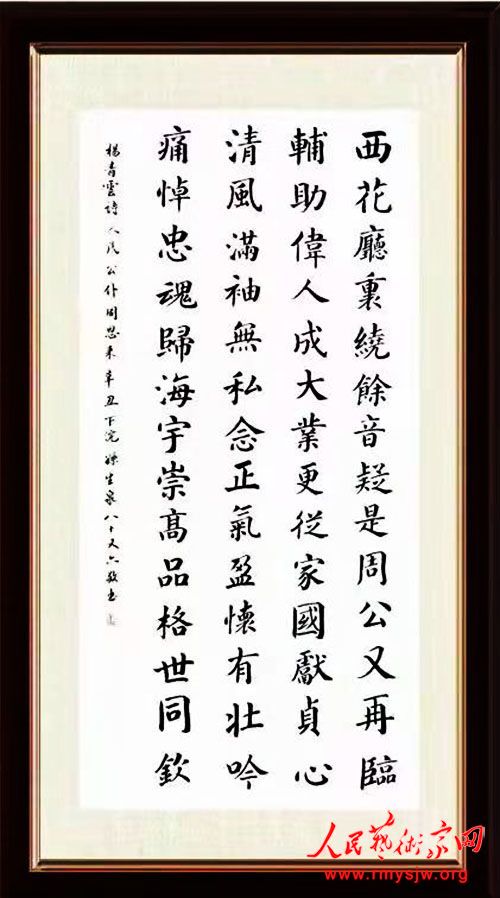 西花廳裏繞餘音疑是周公又再臨
輔助偉人成大業更從家國獻貞心
清風滿袖無私念正氣盈懷有壯吟
痛悼忠魂歸海宇崇高品格世同欽
楊青雲詩人民公仆周恩来辛丑下浣 生泉八十又六敬书
人民藝術家网
www.rmysjw.org